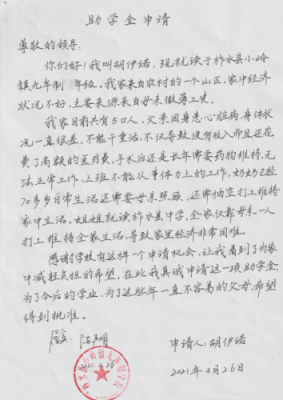 助学金申请
尊敬的领导:
你们好!我叫胡伊诺,现就读于柞水县小岭
镇九年制 年级,我家来自农村的一个山区,家中经济
状况不好,主要来源来自母亲做薄工资
我家目前共有5口人,父亲因身患心脏病,身体状
况一直很差,不能干重活,不仅导致没有收入而且还花
费了高额的医药费,手术后还是长年需要药物维持,无
法正常工作,上班不能从事体力上的工作,奶奶已经
70多岁日常生活还需要母亲照顾,还需抽空打工维持
家中生活,姐姐就读柞水县中学,全家仅靠母亲一人
打工维持全家生活,导致家里经济非常困难。
感谢学校有这样一个申请机会,让我看到了为家
中减轻负担的希望,在此我真诚申请这一项助学金
为了今后的学业,为了这些年一直不容易的父母希望
得到批准。
申请人:胡伊诺
2021年2月26日